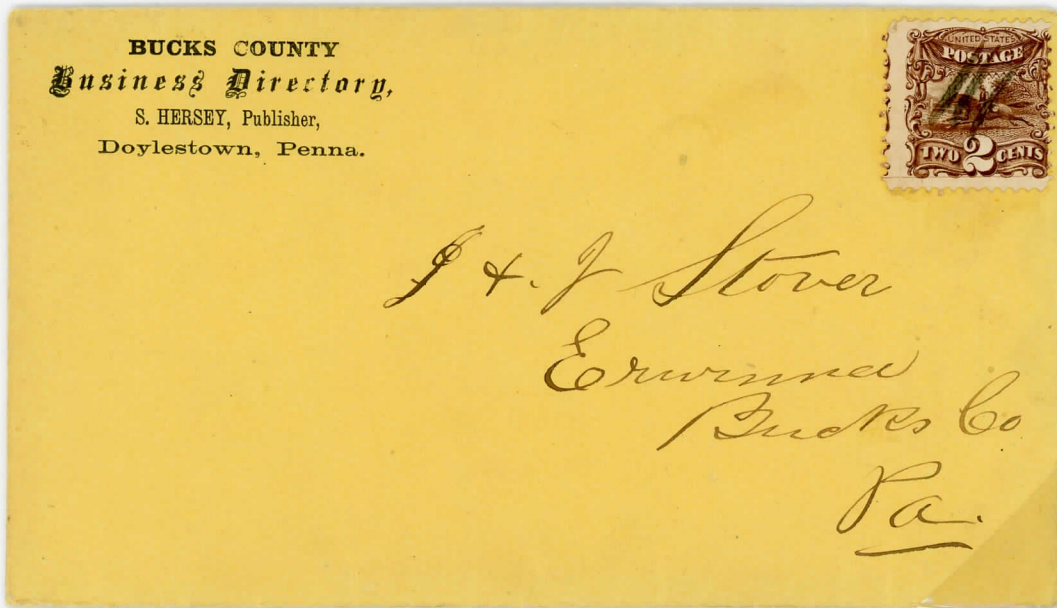 BUCKS COUNTY
Business Directory,
S. HERSEY, Publisher,
Doylestown, Penna.
UNITED STATES
POSTAGE
TWO 2 CENTS
J & J Stover
Erwinna
Bucks Co
Pa.